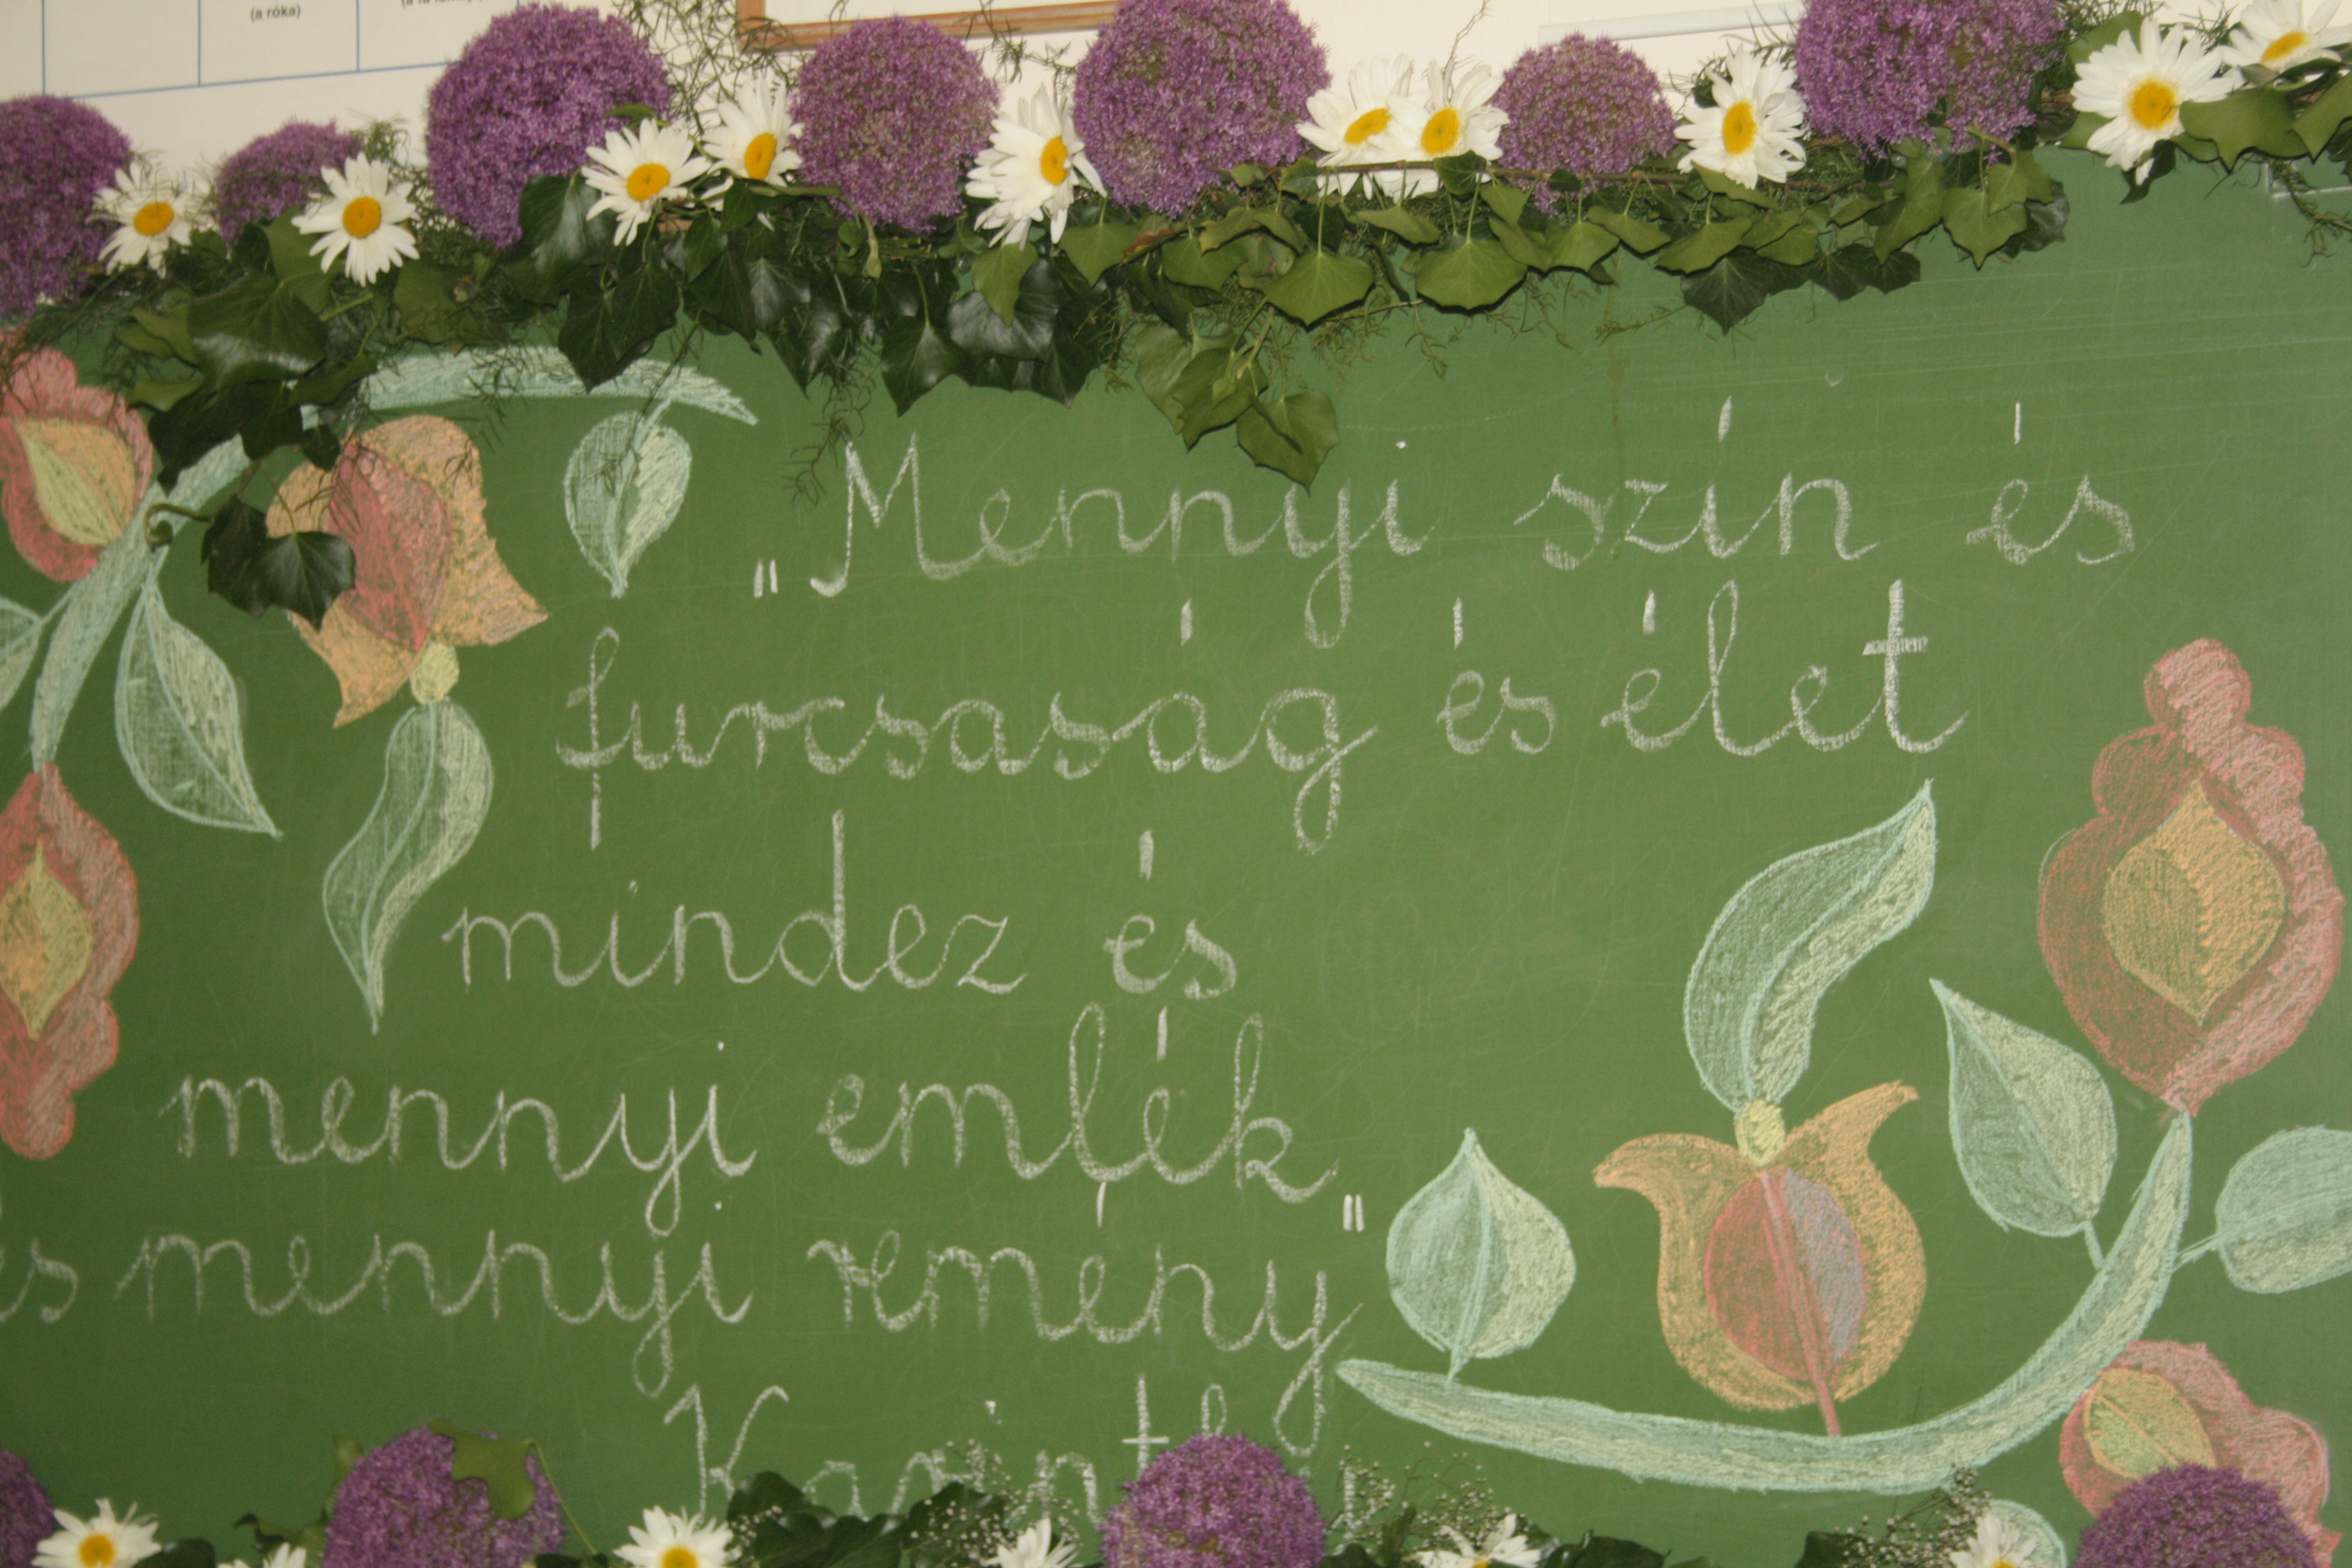 (a róka)
„Mennyi szín és
furcsaság és élet
mindez és
mennyi emlék
és mennyi remény"